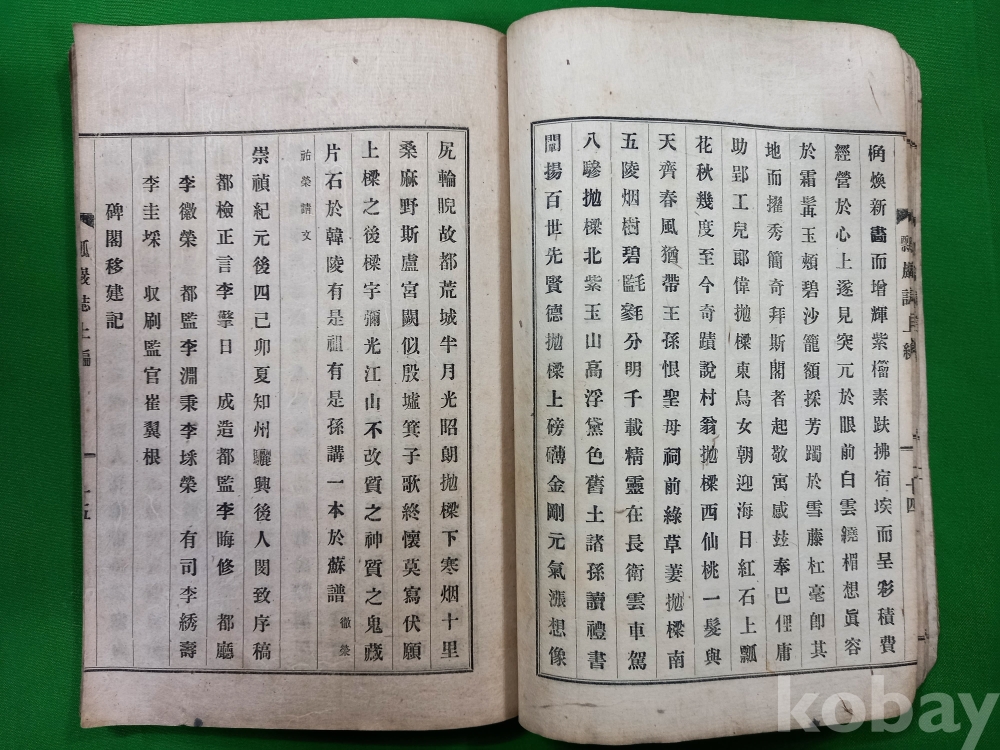 桷煥新畵而增輝紫橊素趺拂宿埃而呈彩積費
經營於心上遂見突元於眼前白雲繞楣想眞容
於霜髯玉頰碧沙籠額採芳躅於雪藤杠毫卽其
地而擢秀簡奇拜斯閣者起敬寓感玆奉巴俚庸
助郢工兒郞偉拋樑東烏女朝迎海日紅石上瓢
花秋幾度至今奇蹟說村翁拋樑西仙桃一髮與
天齊春風猶帶王孫恨聖母祠前綠草萋拋樑南
五陵烟樹碧毿毿分明千載精靈在長衛雲車駕
八驂拋樑北紫玉山高浮黛色舊土諸孫讀禮書
闡揚百世先賢德拋樑上磅礴金剛元氣漲想像
瓢巖誌上編
二十四
尻輪睨故都荒城半月光昭朗拋樑下寒烟十里
桑麻野斯盧宮闕似殷墟箕子歌終懷莫寫伏願
上樑之後樑宇彌光江山不改質之神質之鬼蕆
片石於韓陵有是祖有是孫講一本於蘇譜 徽榮
祐榮請文
崇禎紀元後四己卯夏知州驪興後人閔致序稿
都檢正言李擎日 成造都監李晦修 都廳
李徽榮 都監李淵秉李球榮 有司李綉壽
李圭埰 収刷監官崔翼根
碑閣移建記
瓢巖誌上編
二十五
kobay